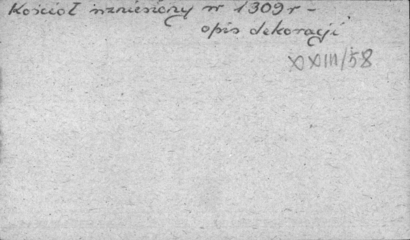 Kościół wzniesiony w 1309 r -
opis dekoracji
XXIII/58